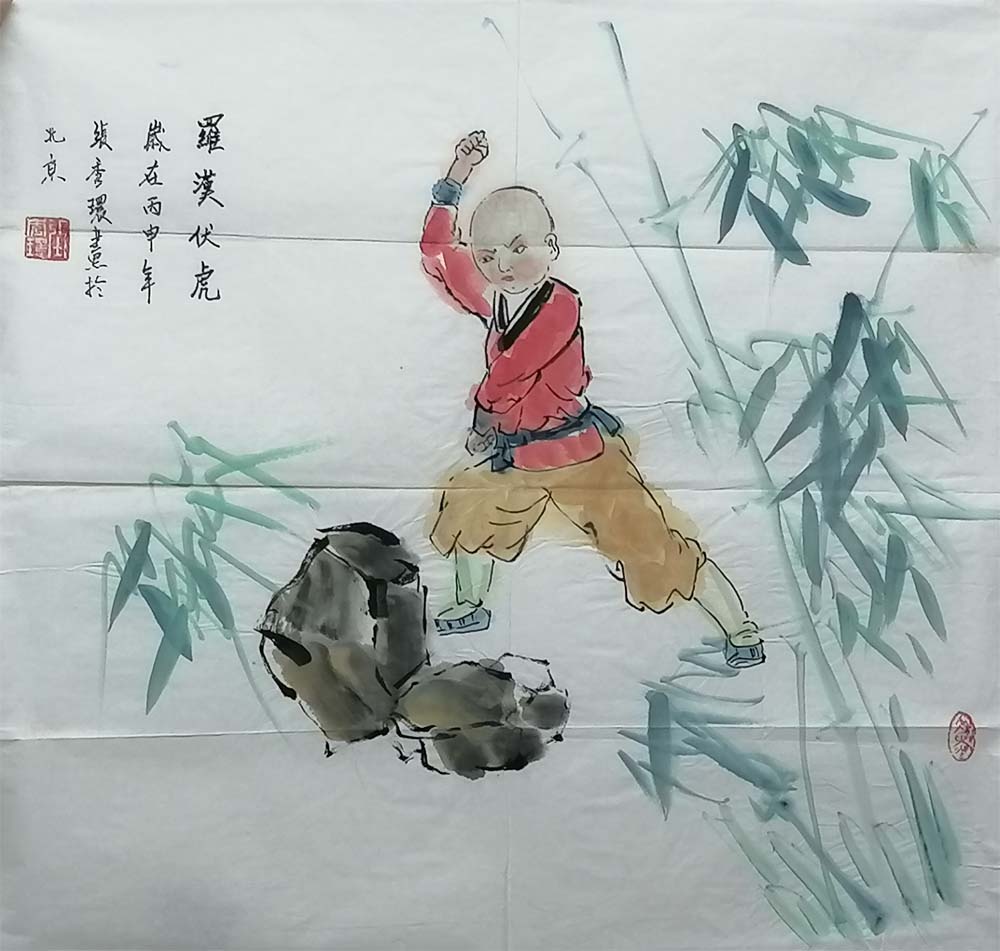 羅漢伏虎
歲在丙申年
張秀環畫於
北京